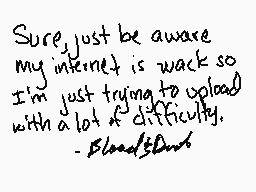 Sure, just be aware
my internet is wack so
I'm just trying to upload
with a lot of difficulty.
-